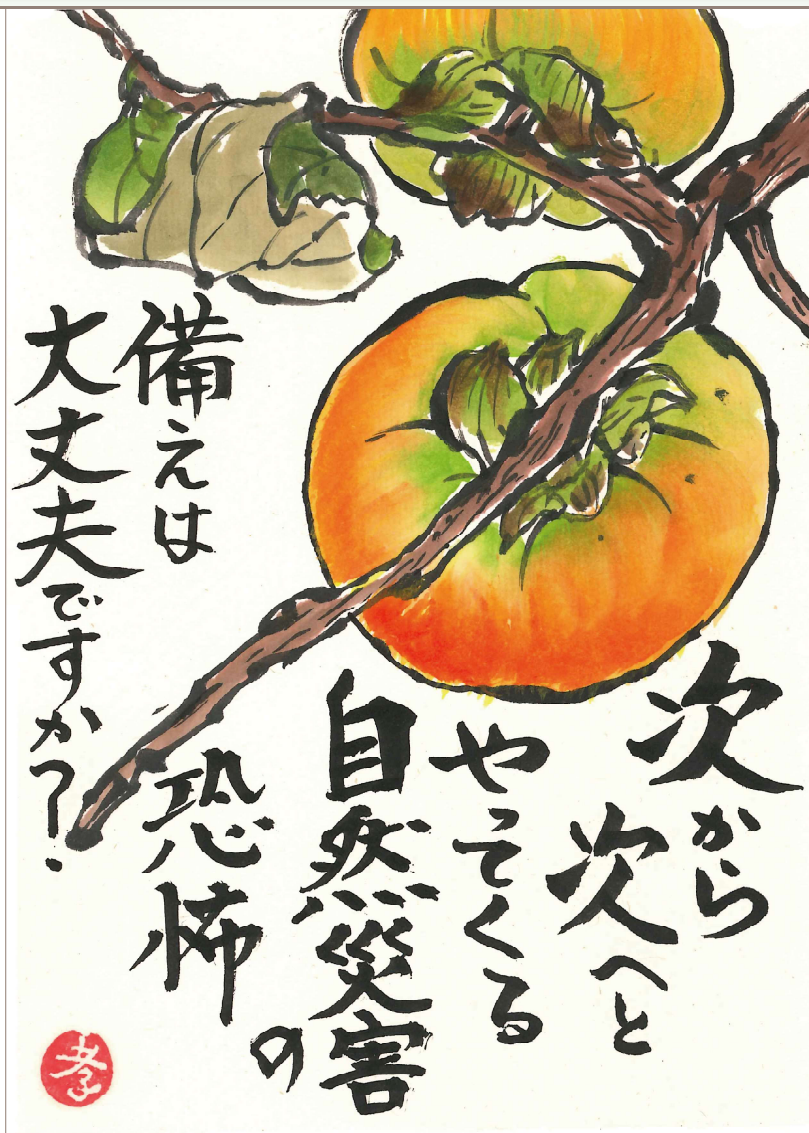 次から
次へと
やってくる
自然災害の
恐怖
備えは
大丈夫ですか?
孝